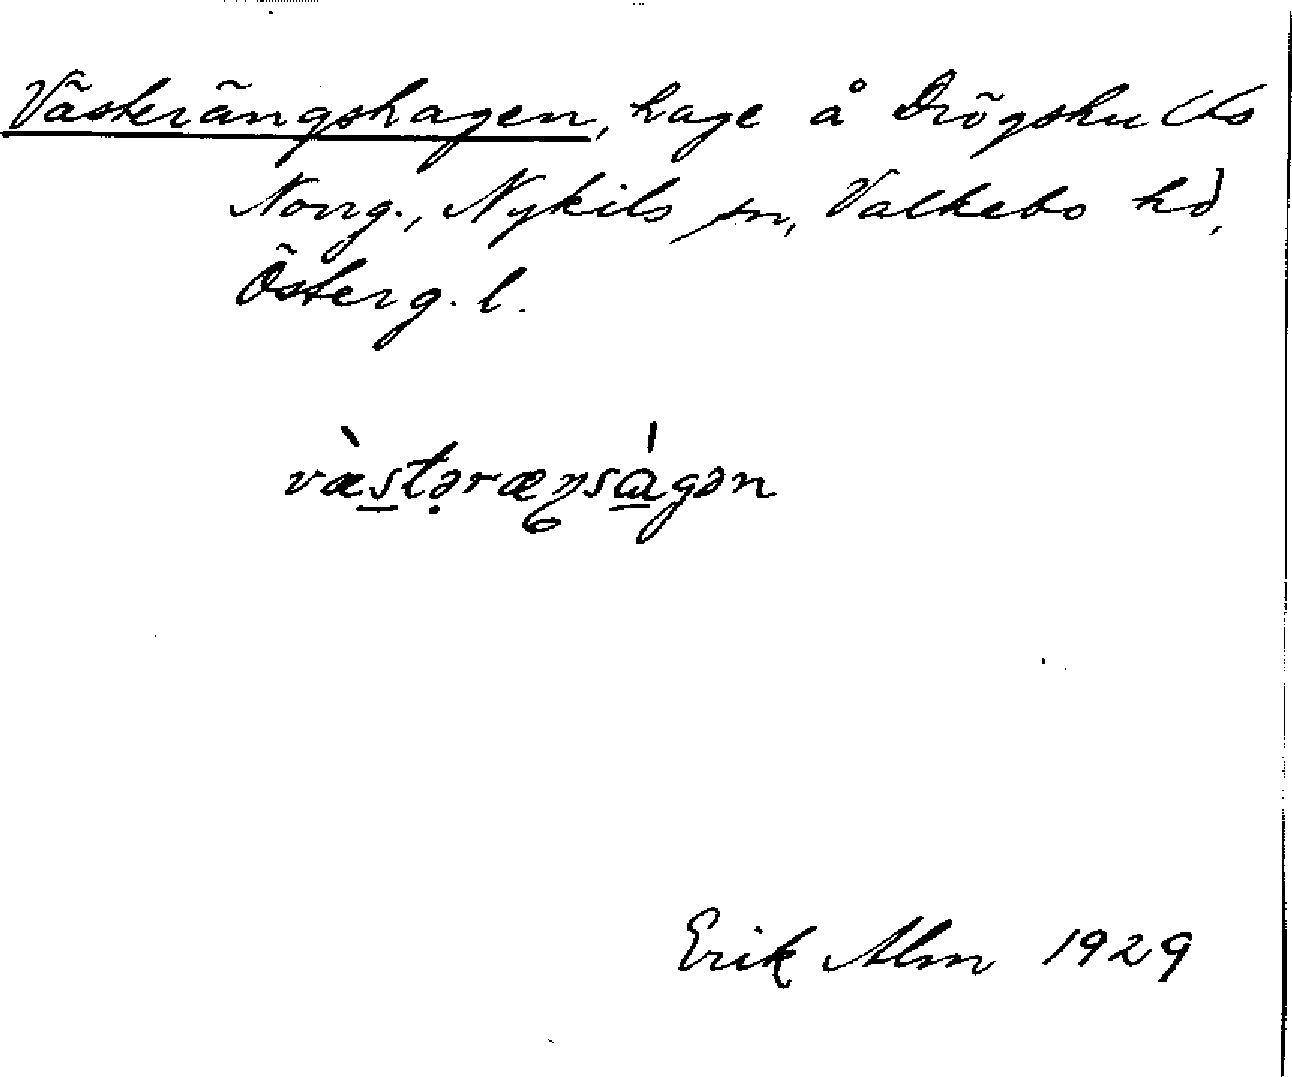 Västerängshagen, hage å Drögshults
Norrg., Nykils sn, Valkebo hd,
Österg. l.
væ̀stəræŋsɑ́gən
Erik Alm 1929